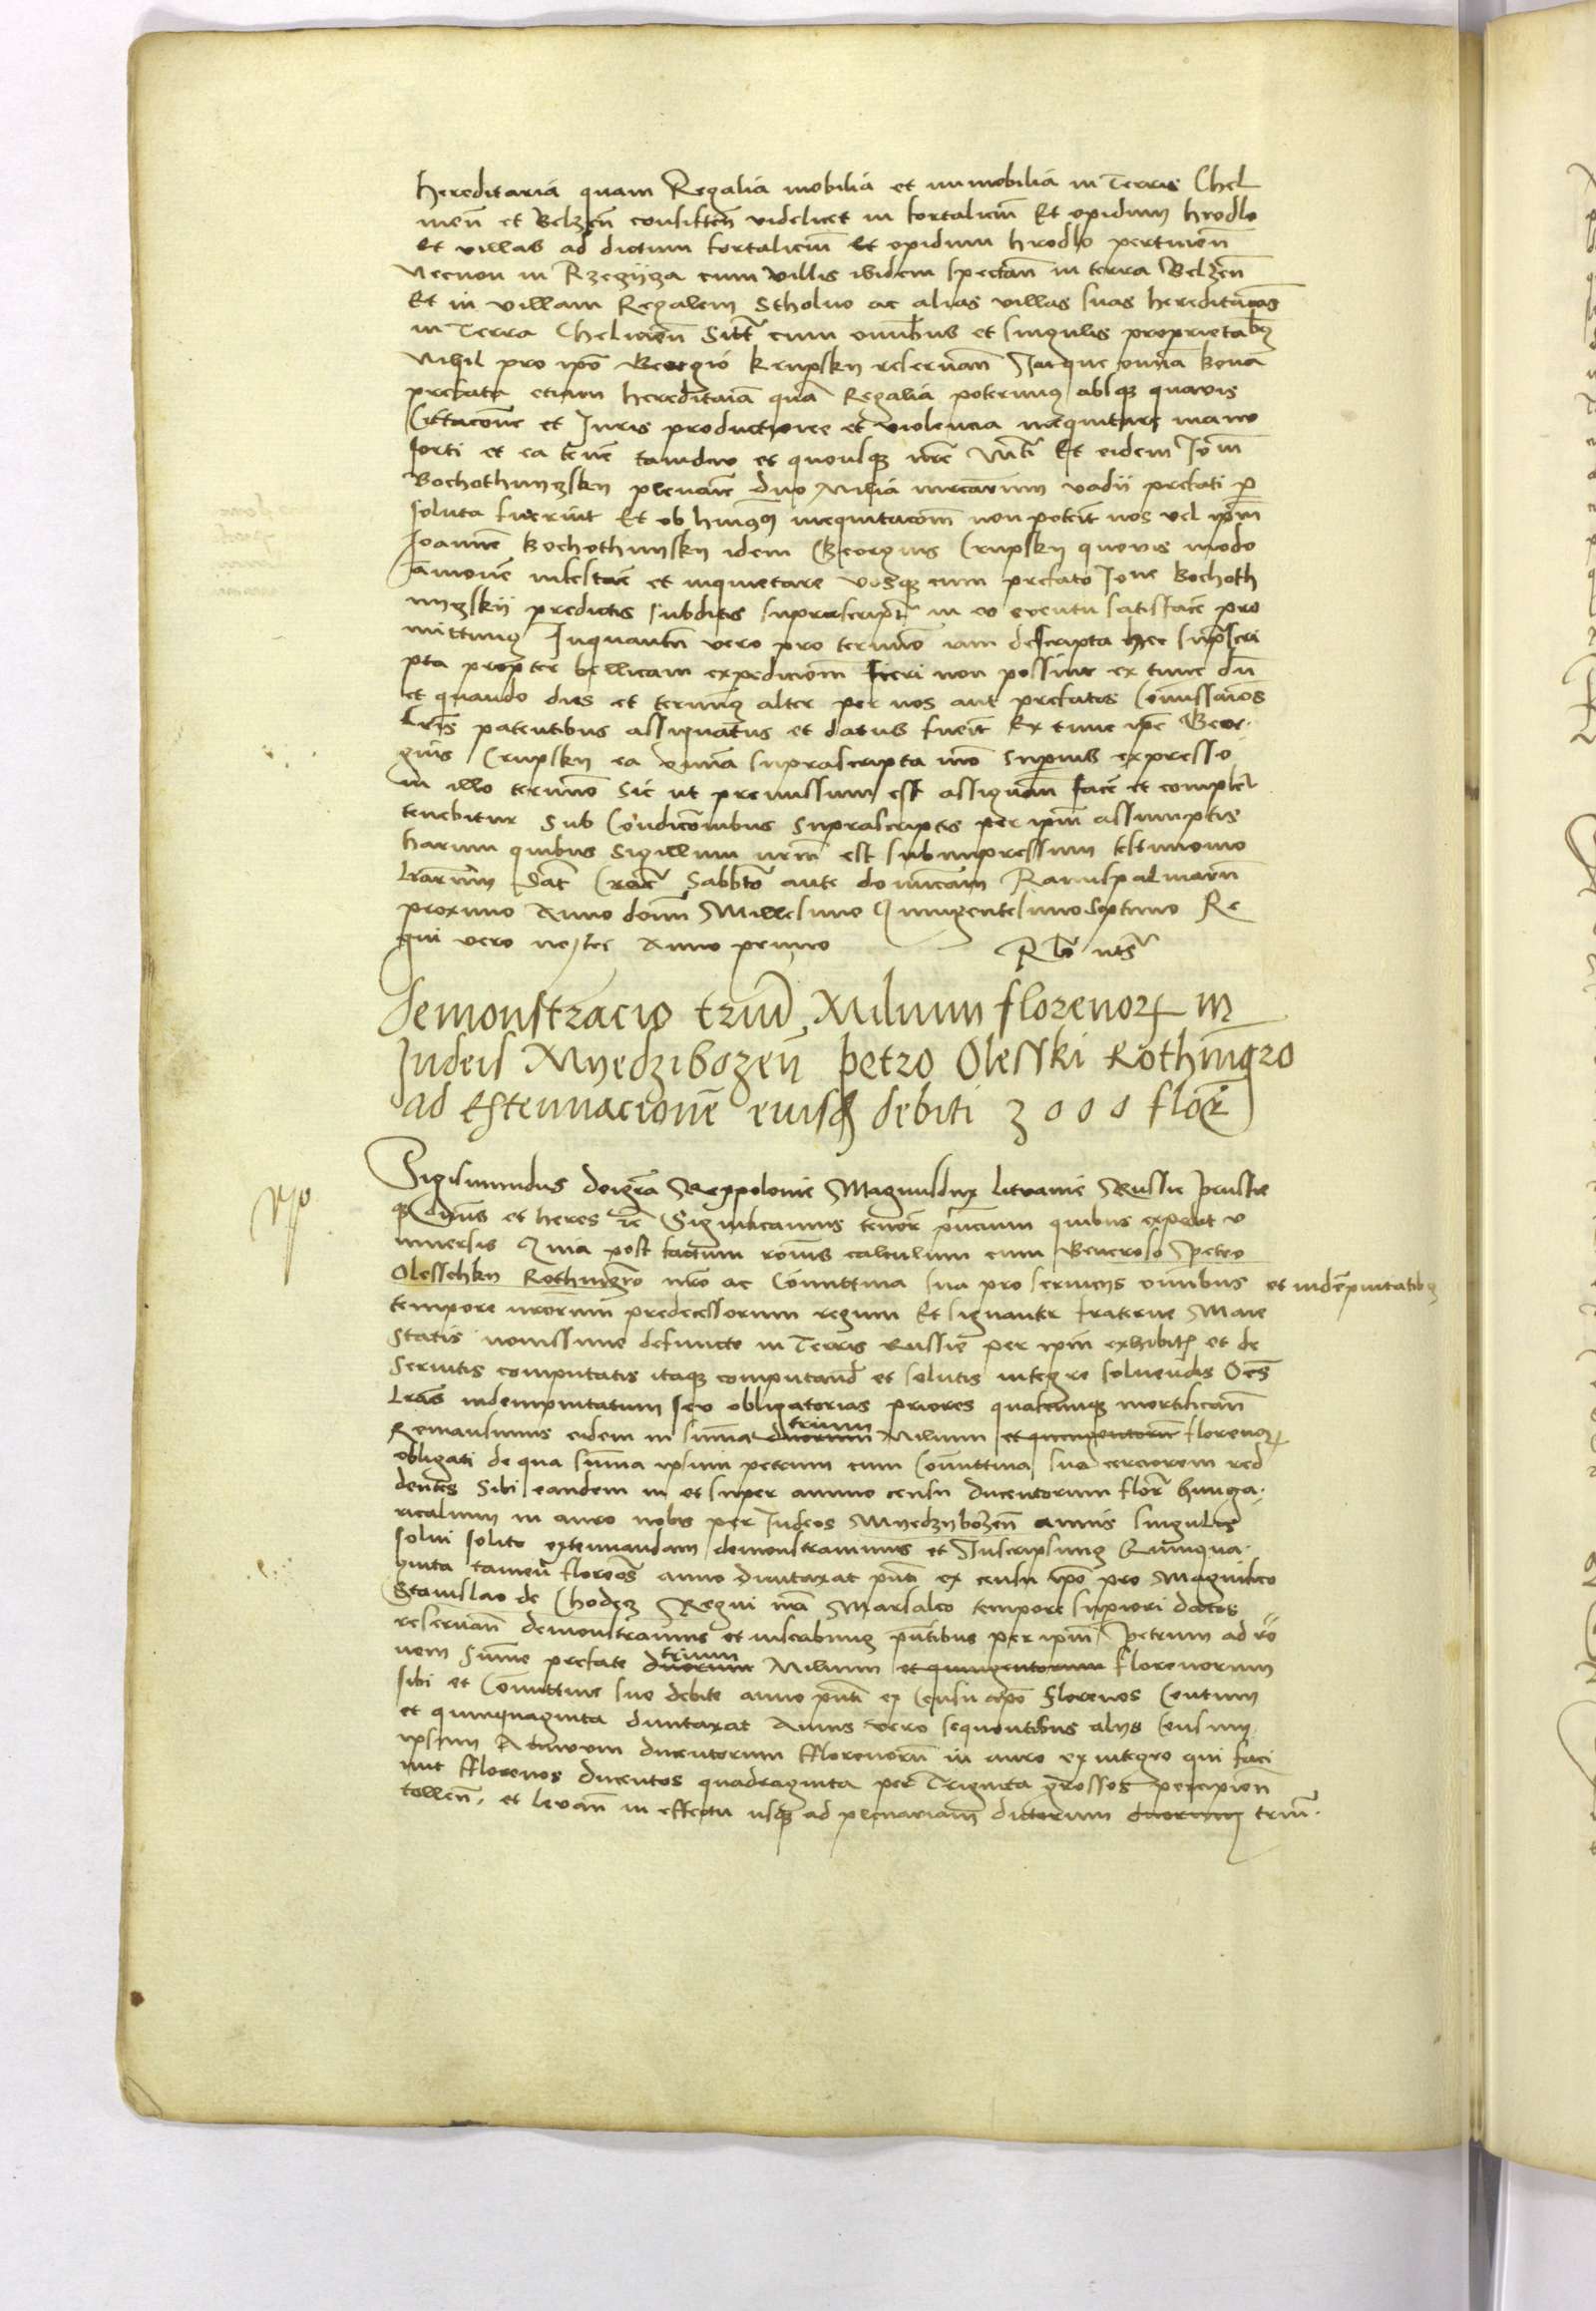 hereditaria quam Regalia mobilia et immobilia in Terris Chel
meñ et Belzeñ consisteñ videlicet in fortaliciũ Et opidum hrodlo
et villas ad dictum fortaliciũ et opidum hrodlo pertineñ
Necnon in Rzeczycza cum villis ibidem spectañ in terra Belzeñ
Et in villam Regalem Stholno ac alias villas suas hereditarias
in Terra Chelmeñ Sitt cum omībus et singulis proprietabꝫ
Nihil pro ipō Georgio Krupsky reservañ Itaque omīa bona
prefata etiam hereditaia quā Regalia poterimꝰ absqꝫ quavis
Cittacōne et Juris productione et violencia inequitare manu
forti et ea teñe tamdiu et quousqꝫ nrē Mti Et eidem Joñi
Bochothnyczsky plenarie duo Milia mrcarum vadii prefati ꝑ
soluta fuerint Et ob huiꝰmōi inequitacōm non poterit nos vel ipm̄
Joannē Bochothnisky idem Georgius Crupsky quovis modo
āmonē infestarē et inquietare Vosqꝫ cum prefato Jone Bochoth
nyczskij predictis subditis suprascript in eo eventu satisfacē pro
mittimꝰ Inquantū vero pro termīo iam descripta hec suprascri
pta propter bellicam expedicionē fieri non possint ex tunc dū
et quando dies et terminꝰ alter per nos aut prefatos Comissaios
Lrīs patentibus assignatus et datus fuerit Ex tunc ipe Geor
gius Crupsky ea omīa suprascripta mō superius expresso
in illo termino sic ut premissum est assignañ facē et complere
tenebitur sub Condicōnibus suprascriptis per ipm̄ assumptis
harum quibus Sigillum nrm̄ est subimpressum testimonio
lrārum Dat Crac Sabbto ante dominicam Ramispalmarū
proximo Anno domī Millesimo Quingentesimo Septimo Re
gni vero nostri Anno primo Rlō uts
Demonstracio triū Milium florenorꝝ in
Judeis Myedzibozeñ petro Olesski Rothmgro
ad Extennuacionē eiusdē debiti 3000 flor
Sigismundus deigrā Rexpolonie Magnusdux Litvanie Russie prussie
qꝫ dnūs et heres zc Significamus tenorē pn̄cium quibus expedit v
niversis Quia post factum rōnis calculum cum Generoso Petro
Olesschky Rothmgrō nrō ac Comittiva sua pro serviciis omībus et indēpnitatibꝫ
tempore nrōrum predecessorum regum Et signanter fraterne Maie
Statis novissime defuncte in Terris Russie per ipm̄ exhibitꝭ et de
Servitis computatis itaqꝫ computand et solutis integre solvendis Oēs
Lras indempnitatum seu obligatorias priores quascumqꝫ mortificañ
Remansimus eidem in sum̄a duorum trium Milium et quingentorū florenoꝝ
obligati de qua sum̄a ipsum petrum cum Comittiva sua cerciorem red
dentes Sibi eandem in et super annuo censu ducentorum flor hunga
ricalium in auro nobis per Judeos Myedzybozeñ annis singulis
solvi solito extennuandam demonstravimus et Inscripsimꝰ Quinqua
ginta tamen florēos anno duntaxat pn̄ti ex censu ipō pro Magnifico
Stanislao de Chodcz Regni nrī Marsalco tempore supiori datos
reservañ demonstramus et inscribimꝰ pn̄tibus per ipm̄ Petrum ad rō
nem Sum̄e prefate duorum trium Milium et quingentorum florenorum
sibi et Comittive sue debite anno pn̄ti ex Censu ipō florenos Centum
et quinquaginta duntaxat Annis vero sequentibus aliis Censum
ipsum Annuum ducentorum fflorenorū in auro ex integro qui faci
unt fflorenos ducentos quadraginta per Triginta grossos percipieñ
tolleñ et levañ in effectu usqꝫ ad plenariam dictorum duorum trium